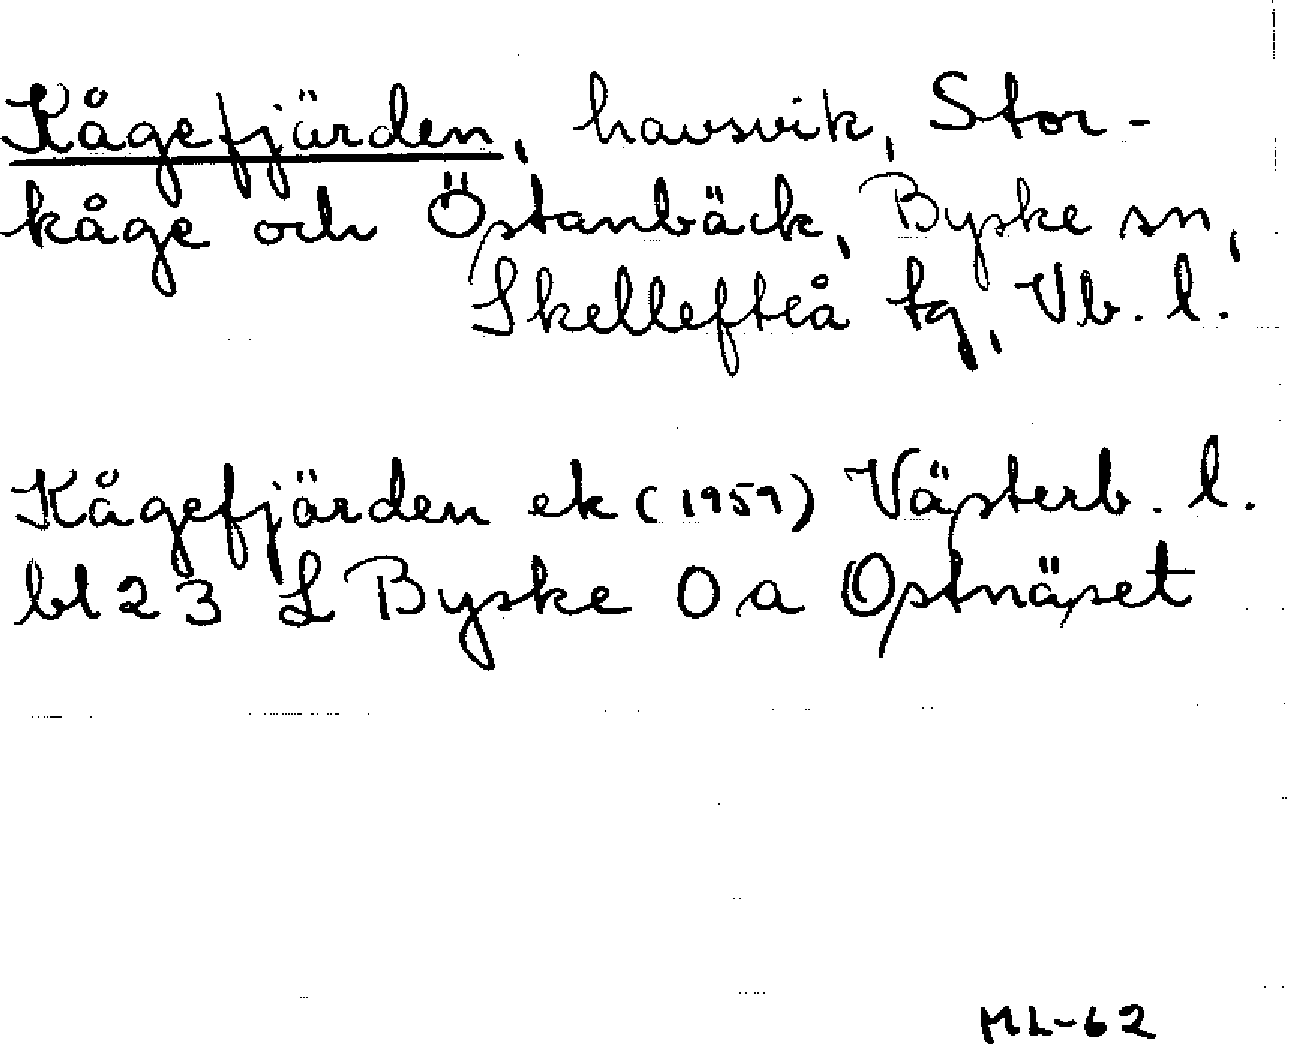 Kågefjärden, havsvik, Stor-
kåge och Östanbäck, Byske sn,
Skellefteå tg, Vb. l.
Kågefjärden ek (1959) Västerb. l.
bl 23 L Byske O a Ostnäset
ML-62